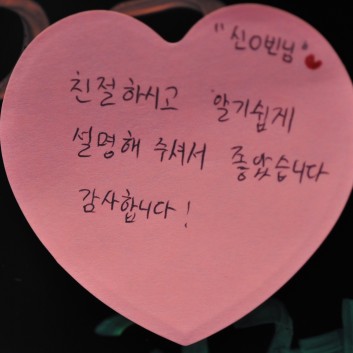 "신O빈님"
친절하시고 알기쉽게
설명해 주셔서 좋았습니다
감사합니다!